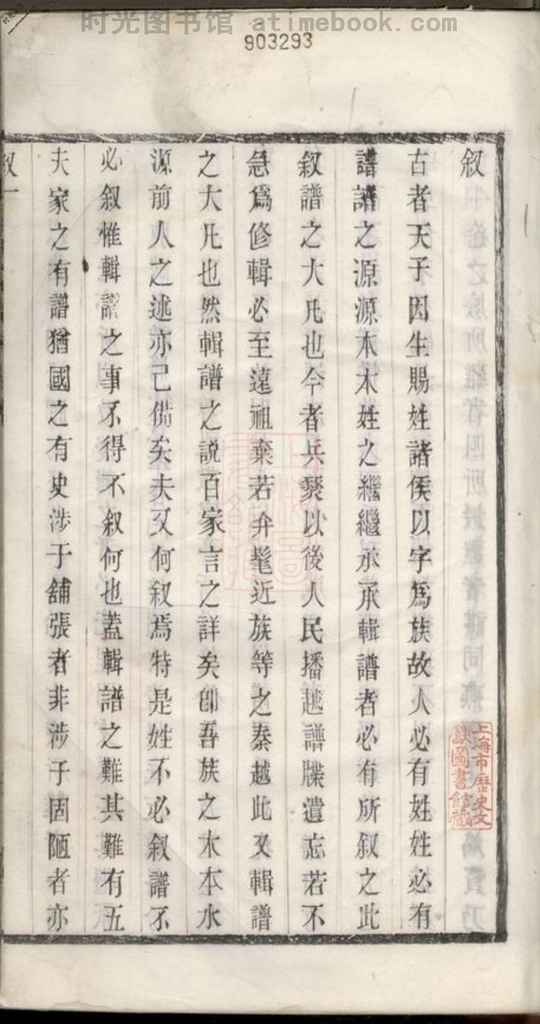 时光图书馆 atimebook.com
903293
叙
古者天子因生賜姓諸侯以字爲族故人必有姓姓必有
譜譜之源源本木姓之繼繼承承輯譜者必有所叙之此
叙譜之大凡也今者兵燹以後人民播越譜牒遺忘若不
急爲修輯必至遠祖棄若弁髦近族等之秦越此又輯譜
之大凡也然輯譜之說百家言之詳矣卽吾族之木本水
源前人之述亦已備矣夫又何叙焉特是姓不必叙譜不
必叙惟輯譜之事不得不叙何也蓋輯譜之難其難有五
夫家之有譜猶國之有史涉于舖張者非涉于固陋者亦
叙一
上海市歷史文
獻圖書館藏